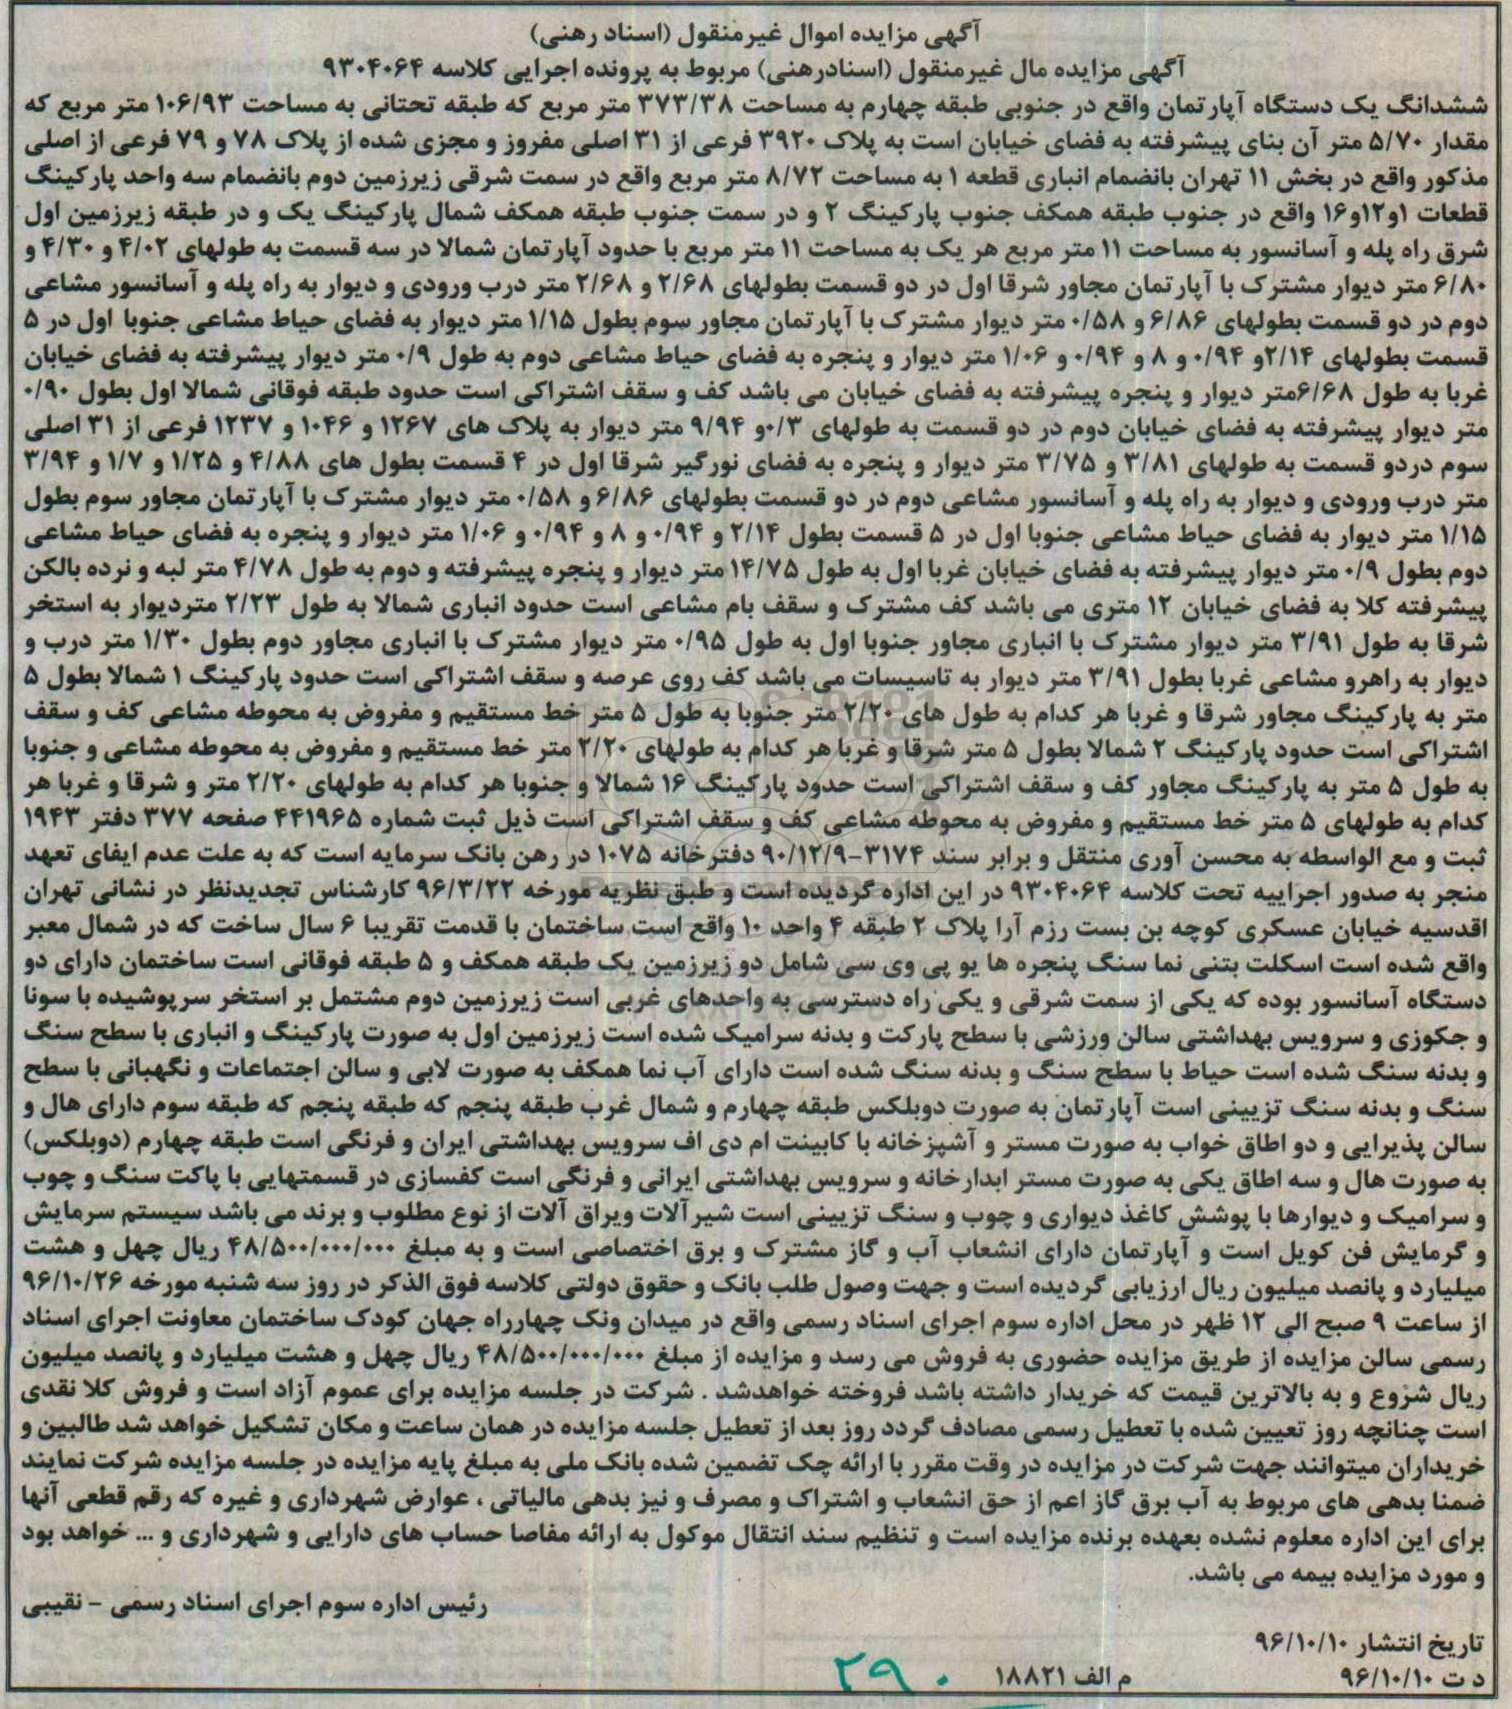 آگهی مزایده اموال غیرمنقول (اسناد رهنی)
آگهی مزایده مال غیرمنقول (اسنادرهنی) مربوط به پرونده اجرایی کلاسه ۹۳۰۴۰۶۴
ششدانگ یک دستگاه آپارتمان واقع در جنوبی طبقه چهارم به مساحت ۳۷۳/۳۸ متر مربع که طبقه تحتانی به مساحت ۱۰۶/۹۳ متر مربع که
مقدار ۵/۷۰ متر آن بنای پیشرفته به فضای خیابان است به پلاک ۳۹۲۰ فرعی از ۳۱ اصلی مفروز و مجزی شده از پلاک ۷۸ و ۷۹ فرعی از اصلی
مذکور واقع در بخش ۱۱ تهران بانضمام انباری قطعه ۱ به مساحت ۸/۷۲ متر مربع واقع در سمت شرقی زیرزمین دوم بانضمام سه واحد پارکینگ
قطعات ۱و۱۲و۱۶ واقع در جنوب طبقه همکف جنوب پارکینگ ۲ و در سمت جنوب طبقه همکف شمال پارکینگ یک و در طبقه زیرزمین اول
شرق راه پله و آسانسور به مساحت ۱۱ متر مربع هر یک به مساحت ۱۱ متر مربع با حدود آپارتمان شمالا در سه قسمت به طولهای ۴/۰۲ و ۴/۳۰ و
۶/۸۰ متر دیوار مشترک با آپارتمان مجاور شرقا اول در دو قسمت بطولهای ۲/۶۸ و ۲/۶۸ متر درب ورودی و دیوار به راه پله و آسانسور مشاعی
دوم در دو قسمت بطولهای ۶/۸۶ و ۰/۵۸ متر دیوار مشترک با آپارتمان مجاور سوم بطول ۱/۱۵ متر دیوار به فضای حیاط مشاعی جنوبا اول در ۵
قسمت بطولهای ۲/۱۴و ۰/۹۴ و ۸ و ۰/۹۴ و ۱/۰۶ متر دیوار و پنجره به فضای حیاط مشاعی دوم به طول ۰/۹ متر دیوار پیشرفته به فضای خیابان
غربا به طول ۶/۶۸متر دیوار و پنجره پیشرفته به فضای خیابان می باشد کف و سقف اشتراکی است حدود طبقه فوقانی شمالا اول بطول ۰/۹۰
متر دیوار پیشرفته به فضای خیابان دوم در دو قسمت به طولهای ۰/۳و ۹/۹۴ متر دیوار به پلاک های ۱۲۶۷ و ۱۰۴۶ و ۱۲۳۷ فرعی از ۳۱ اصلی
سوم دردو قسمت به طولهای ۳/۸۱ و ۳/۷۵ متر دیوار و پنجره به فضای نورگیر شرقا اول در ۴ قسمت بطول های ۴/۸۸ و ۱/۲۵ و ۱/۷ و ۳/۹۴
متر درب ورودی و دیوار به راه پله و آسانسور مشاعی دوم در دو قسمت بطولهای ۶/۸۶ و ۰/۵۸ متر دیوار مشترک با آپارتمان مجاور سوم بطول
۱/۱۵ متر دیوار به فضای حیاط مشاعی جنوبا اول در ۵ قسمت بطول ۲/۱۴ و ۰/۹۴ و ۸ و ۰/۹۴ و ۱/۰۶ متر دیوار و پنجره به فضای حیاط مشاعی
دوم بطول ۰/۹ متر دیوار پیشرفته به فضای خیابان غربا اول به طول ۱۴/۷۵ متر دیوار و پنجره پیشرفته و دوم به طول ۴/۷۸ متر لبه و نرده بالکن
پیشرفته کلا به فضای خیابان ۱۲ متری می باشد کف مشترک و سقف بام مشاعی است حدود انباری شمالا به طول ۲/۲۳ متردیوار به استخر
شرقا به طول ۳/۹۱ متر دیوار مشترک با انباری مجاور جنوبا اول به طول ۰/۹۵ متر دیوار مشترک با انباری مجاور دوم بطول ۱/۳۰ متر درب و
دیوار به راهرو مشاعی غربا بطول ۳/۹۱ متر دیوار به تاسیسات می باشد کف روی عرصه و سقف اشتراکی است حدود پارکینگ ۱ شمالا بطول ۵
متر به پارکینگ مجاور شرقا و غربا هر کدام به طول های ۲/۲۰ متر جنوبا به طول ۵ متر خط مستقیم و مفروض به محوطه مشاعی کف و سقف
اشتراکی است حدود پارکینگ ۲ شمالا بطول ۵ متر شرقا و غربا هر کدام به طولهای ۲/۲۰ متر خط مستقیم و مفروض به محوطه مشاعی و جنوبا
به طول ۵ متر به پارکینگ مجاور کف و سقف اشتراکی است حدود پارکینگ ۱۶ شمالا و جنوبا هر کدام به طولهای ۲/۲۰ متر و شرقا و غربا هر
کدام به طولهای ۵ متر خط مستقیم و مفروض به محوطه مشاعی کف و سقف اشتراکی است ذیل ثبت شماره ۴۴۱۹۶۵ صفحه ۳۷۷ دفتر ۱۹۴۳
ثبت و مع الواسطه به محسن آوری منتقل و برابر سند ۳۱۷۴-۹۰/۱۲/۹ دفترخانه ۱۰۷۵ در رهن بانک سرمایه است که به علت عدم ایفای تعهد
منجر به صدور اجراییه تحت کلاسه ۹۳۰۴۰۶۴ در این اداره گردیده است و طبق نظریه مورخه ۹۶/۳/۲۲ کارشناس تجدیدنظر در نشانی تهران
اقدسیه خیابان عسکری کوچه بن بست رزم آرا پلاک ۲ طبقه ۴ واحد ۱۰ واقع است ساختمان با قدمت تقریبا ۶ سال ساخت که در شمال معبر
واقع شده است اسکلت بتنی نما سنگ پنجره ها یو پی وی سی شامل دو زیرزمین یک طبقه همکف و ۵ طبقه فوقانی است ساختمان دارای دو
دستگاه آسانسور بوده که یکی از سمت شرقی و یکی راه دسترسی به واحدهای غربی است زیرزمین دوم مشتمل بر استخر سرپوشیده با سونا
و جکوزی و سرویس بهداشتی سالن ورزشی با سطح پارکت و بدنه سرامیک شده است زیرزمین اول به صورت پارکینگ و انباری با سطح سنگ
و بدنه سنگ شده است حیاط با سطح سنگ و بدنه سنگ شده است دارای آب نما همکف به صورت لابی و سالن اجتماعات و نگهبانی با سطح
سنگ و بدنه سنگ تزیینی است آپارتمان به صورت دوبلکس طبقه چهارم و شمال غرب طبقه پنجم که طبقه پنجم که طبقه سوم دارای هال و
سالن پذیرایی و دو اطاق خواب به صورت مستر و آشپزخانه با کابینت ام دی اف سرویس بهداشتی ایران و فرنگی است طبقه چهارم (دوبلکس)
به صورت هال و سه اطاق یکی به صورت مستر ابدارخانه و سرویس بهداشتی ایرانی و فرنگی است کفسازی در قسمتهایی با پاکت سنگ و چوب
و سرامیک و دیوارها با پوشش کاغذ دیواری و چوب و سنگ تزیینی است شیرآلات ویراق آلات از نوع مطلوب و برند می باشد سیستم سرمایش
و گرمایش فن کویل است و آپارتمان دارای انشعاب آب و گاز مشترک و برق اختصاصی است و به مبلغ ۴۸/۵۰۰/۰۰۰/۰۰۰ ریال چهل و هشت
میلیارد و پانصد میلیون ریال ارزیابی گردیده است و جهت وصول طلب بانک و حقوق دولتی کلاسه فوق الذکر در روز سه شنبه مورخه ۹۶/۱۰/۲۶
از ساعت ۹ صبح الی ۱۲ ظهر در محل اداره سوم اجرای اسناد رسمی واقع در میدان ونک چهارراه جهان کودک ساختمان معاونت اجرای اسناد
رسمی سالن مزایده از طریق مزایده حضوری به فروش می رسد و مزایده از مبلغ ۴۸/۵۰۰/۰۰۰/۰۰۰ ریال چهل و هشت میلیارد و پانصد میلیون
ریال شروع و به بالاترین قیمت که خریدار داشته باشد فروخته خواهدشد . شرکت در جلسه مزایده برای عموم آزاد است و فروش کلا نقدی
است چنانچه روز تعیین شده با تعطیل رسمی مصادف گردد روز بعد از تعطیل جلسه مزایده در همان ساعت و مکان تشکیل خواهد شد طالبین و
خریداران میتوانند جهت شرکت در مزایده در وقت مقرر با ارائه چک تضمین شده بانک ملی به مبلغ پایه مزایده در جلسه مزایده شرکت نمایند
ضمنا بدهی های مربوط به آب برق گاز اعم از حق انشعاب و اشتراک و مصرف و نیز بدهی مالیاتی ، عوارض شهرداری و غیره که رقم قطعی آنها
برای این اداره معلوم نشده بعهده برنده مزایده است و تنظیم سند انتقال موکول به ارائه مفاصا حساب های دارایی و شهرداری و ... خواهد بود
و مورد مزایده بیمه می باشد.
رئیس اداره سوم اجرای اسناد رسمی - نقیبی
تاریخ انتشار ۹۶/۱۰/۱۰
د ت ۹۶/۱۰/۱۰ م الف ۱۸۸۲۱ ۲۹۰